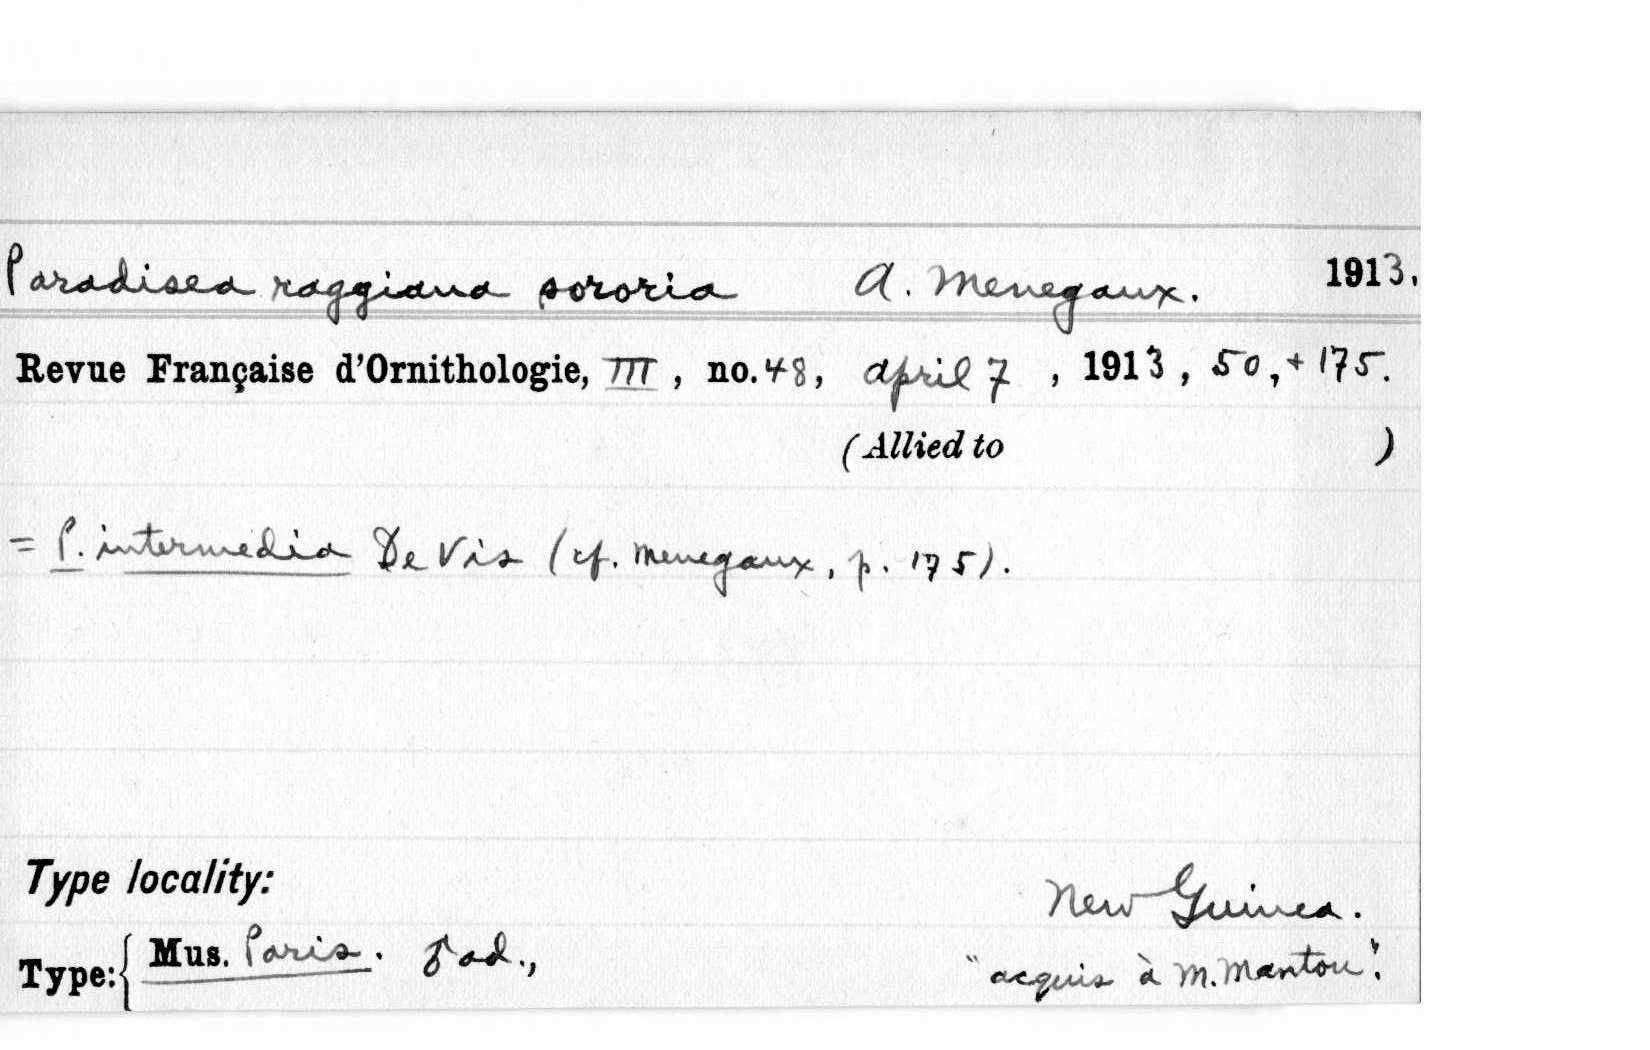 Paradisea raggiana sororia A. Menegaux. 1913.
Revue Française d'Ornithologie, III, no. 48, April 7, 1913, 50, + 175.
(Allied to )
= P. intermedia De Vis (cf. Menegaux, p. 175).
Type locality: New Guinea.
Type: { Mus. Paris. ♂ ad., "acquis à M. Mantou".